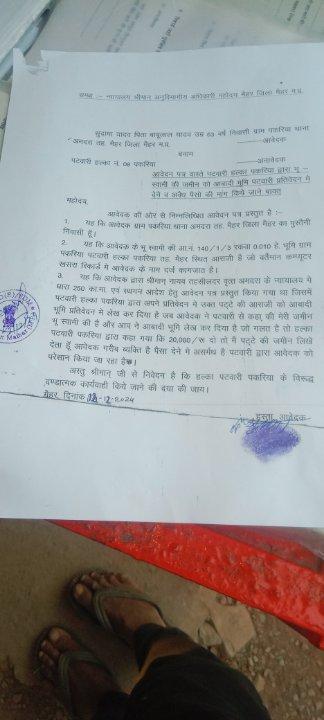 समक्ष :– न्यायालय श्रीमान अनुविभागीय अधिकारी महोदय मैहर जिला मैहर म.प्र.
सुदामा यादव पिता बाबूलाल यादव उम्र 63 वर्ष निवासी ग्राम पकरिया थाना
अमदरा तह. मैहर जिला मैहर म.प्र. ––––आवेदक
बनाम
पटवारी हल्का नं. 08 पकरिया ––––अनावेदक
आवेदन पत्र वास्ते पटवारी हल्का पकरिया द्वारा भू –
स्वामी की जमीन को आबादी भूमि पटवारी प्रतिवेदन मे
देने व अवैध पैसो की मांग किये जाने बावत्
महोदय,
आवेदक की ओर से निम्नलिखित आवेदन पत्र प्रस्तुत है :–
1. यह कि आवेदक ग्राम पकरिया थाना अमदरा तह. मैहर जिला मैहर का पुस्तैनी
निवासी हूँ।
2. यह कि आवेदक के भू स्वामी की आ.नं. 140/1/3 रकवा 0.010 हे. भूमि ग्राम
पकरिया पटवारी हल्का पकरिया तह. मैहर स्थित आराजी है जो वर्तमान कम्प्यूटर
खसरा रिकार्ड मे आवेदक के नाम दर्ज कागजात है।
3. यह कि आवेदक द्वारा श्रीमान् नायब तहसीलदार वृत्त अमदरा के न्यायालय मे
धारा 250 का.मा. एवं स्थगन आदेश हेतु आवेदन पत्र प्रस्तुत किया गया था जिसमें
पटवारी हल्का पकरिया द्वारा अपने प्रतिवेदन मे उक्त पट्टे की आराजी को आबादी
भूमि प्रतिवेदन मे लेख कर दिया है जब आवेदक ने पटवारी से कहा की मेरी जमीन
भू स्वामी की है और आप ने आबादी भूमि लेख कर दिया है जो गलत है तो हल्का
पटवारी पकरिया द्वारा कहा गया कि 20,000/रू दो तो मै पट्टे की जमीन लिखे
देता हूँ आवेदक गरीब व्यक्ति है पैसा देने मे असमर्थ है पटवारी द्वारा आवेदक को
परेसान किया जा रहा है।
अस्तु श्रीमान् जी से निवेदन है कि हल्का पटवारी पकरिया के विरूद्ध
दण्डात्मक कार्यवाही किये जाने की दया की जाय।
मैहर, दिनांक -12-2024
हस्ता. आवेदक